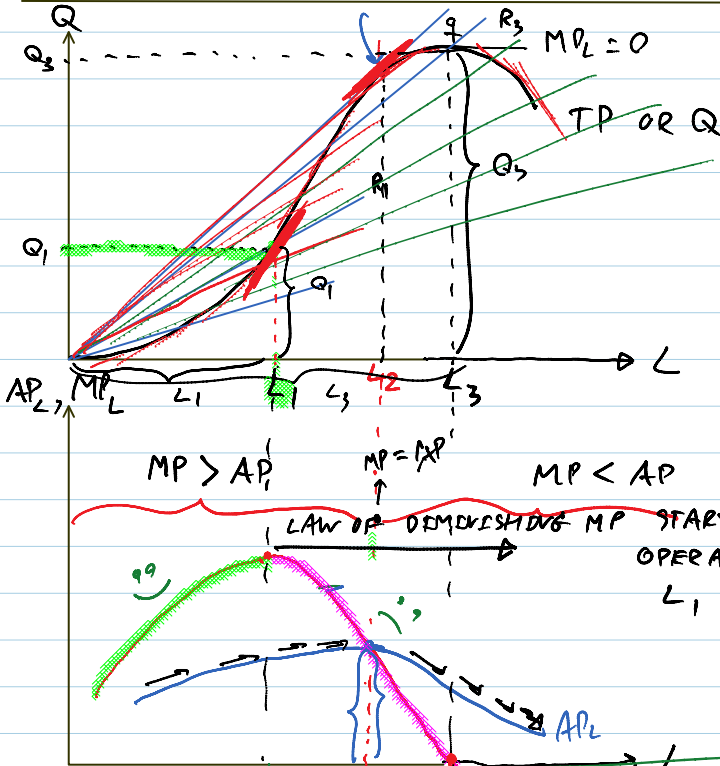 Q
R3
MPL = 0
Q3
TP OR Q
Q3
R1
Q1
Q1
L
APL, MPL
L1
L1
L3
L2
L3
MP > AP
MP = AP
MP < AP
LAW OF DIMINISHING MP STAR
OPERA
L1
APL